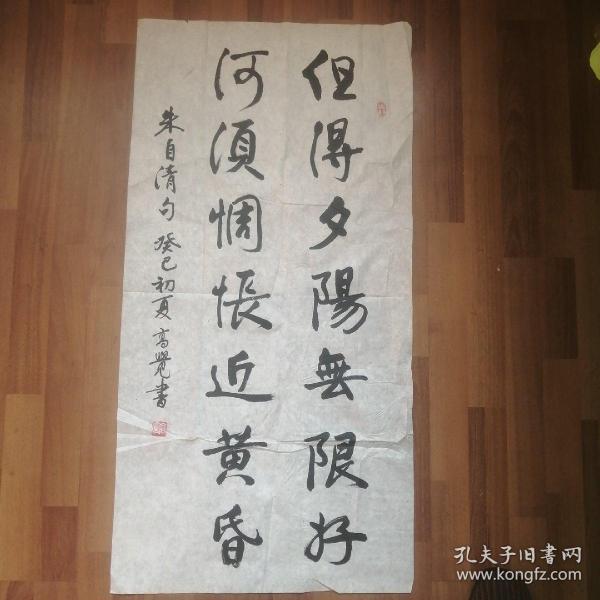 但得夕陽無限好
何須惆悵近黄昏
朱自清句 癸巳初夏 高覺書
孔夫子旧書网
www.kongfz.com